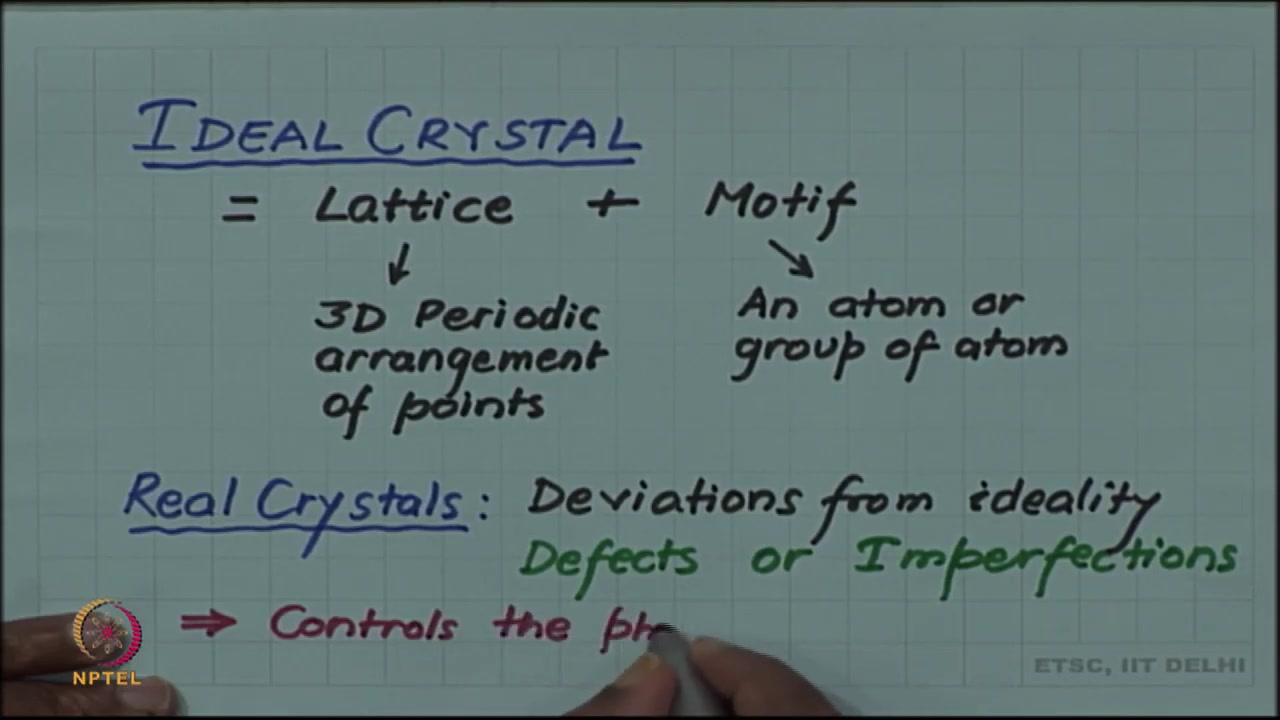 IDEAL CRYSTAL
= Lattice + Motif
3D Periodic
arrangement
of points
An atom or
group of atom
Real Crystals: Deviations from ideality
Defects or Imperfections
⇒ Controls the
NPTEL
ETSC, IIT DELHI